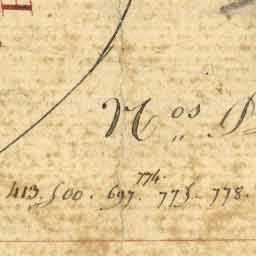 Nos
774.
413. 500. 697. 775. 778.